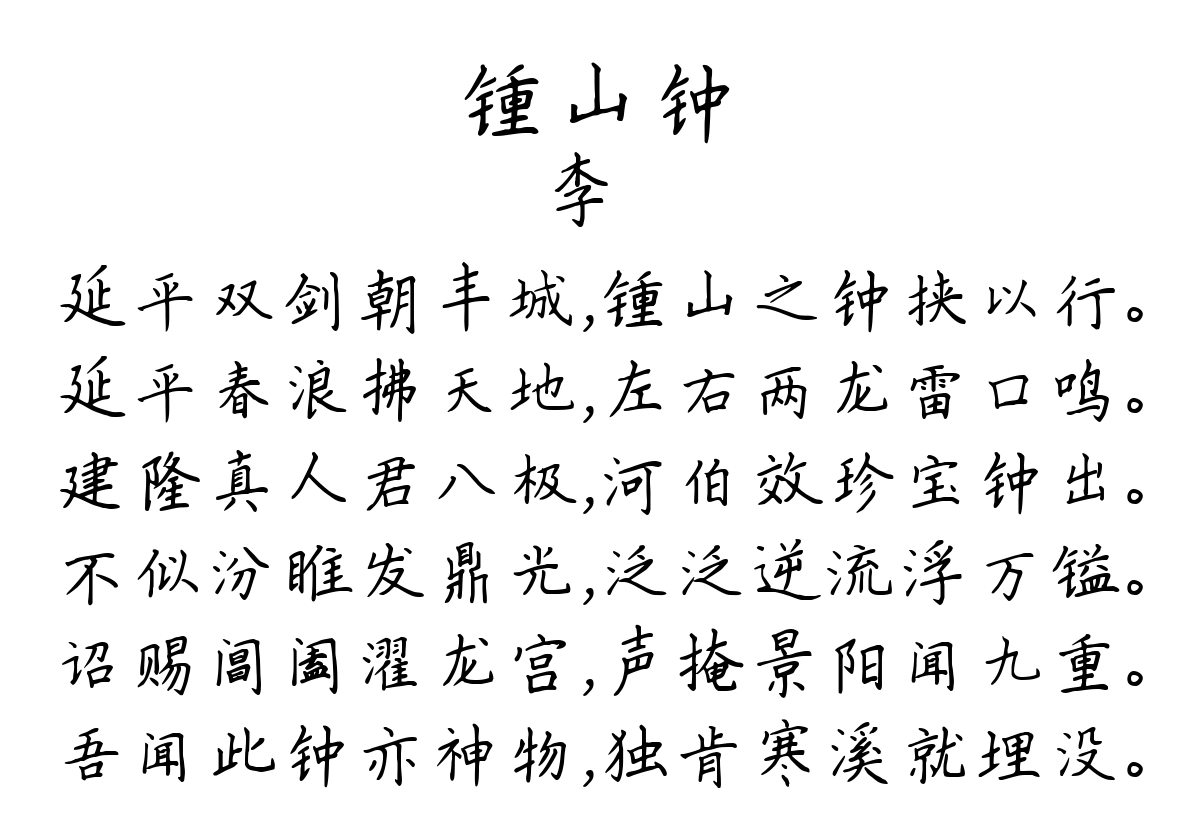 锺山钟
李
延平双剑朝丰城,锺山之钟挟以行。
延平春浪拂天地,左右两龙雷口鸣。
建隆真人君八极,河伯效珍宝钟出。
不似汾睢发鼎光,泛泛逆流浮万镒。
诏赐阊阖濯龙宫,声掩景阳闻九重。
吾闻此钟亦神物,独肯寒溪就埋没。